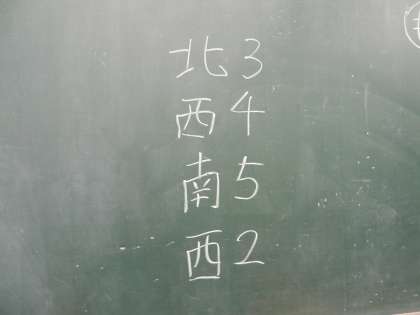 北3
西4
南5
西2